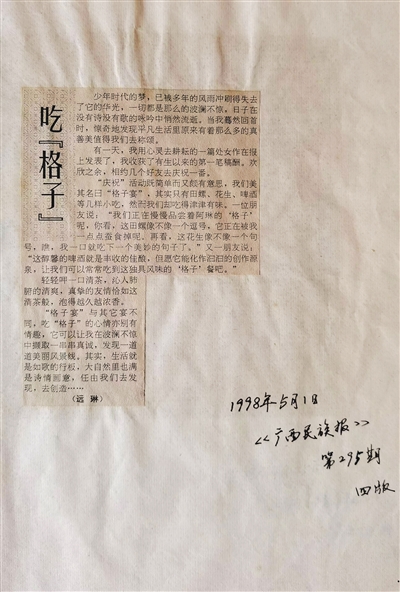 吃『格子』
少年时代的梦，已被多年的风雨冲刷得失去
了它的华光，一切都是那么的波澜不惊。日子在
没有诗没有歌的咏吟中悄然流逝。当我蓦然回首
时，惊奇地发现平凡生活里原来有着那么多的真
善美值得我们去称颂。
有一天，我用心灵去耕耘的一篇处女作在报
上发表了，我收获了有生以来的第一笔稿酬。欢
欣之余，相约几个好友去庆祝一番。
“庆祝”活动既简单而又颇有意思，我们美
其名曰“格子宴”，其实只有田螺、花生、啤酒
等几样小吃，然而我们却吃得津津有味。一位朋
友说：“我们正在慢慢品尝着阿琳的‘格子’
呢，你看，这田螺像不像一个逗号，它正在被我
一点点蚕食掉呢。再看，这花生像不像一个句
号，瞧，我一口就吃下一个美妙的句子了。”又一朋友说：
“这醇馨的啤酒就是丰收的佳酿，但愿它能化作汩汩的创作源
泉，让我们可以常常吃到这独具风味的‘格子’餐吧。”
轻轻呷一口清茶，沁人肺
腑的清爽，真挚的友情恰如这
清茶般，泡得越久越浓香。
“格子宴”与其它宴不
同，吃“格子”的心情亦别有
情趣，它可以让我在波澜不惊
中撷取一串串真诚，发现一道
道美丽风景线。其实，生活就
是如歌的行板，大自然里也满
是诗情画意，任由我们去发
现，去创造……
（远 琳）
1998年5月1日
<<广西民族报>>
第295期
四版